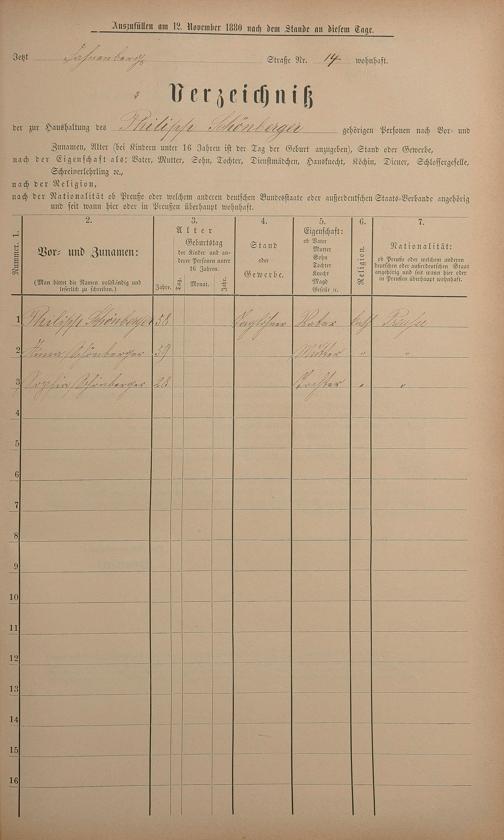 Auszufüllen am 12. November 1880 nach dem Stande an diesem Tage.
Jetzt Straße Nr. 14 wohnhaft.
Verzeichniß
der zur Haushaltung des Philipp Schönberger gehörigen Personen nach Vor- und
Zunamen, Alter (bei Kindern unter 16 Jahren ist der Tag der Geburt anzugeben), Stand oder Gewerbe,
nach der Eigenschaft als: Vater, Mutter, Sohn, Tochter, Dienstmädchen, Hausknecht, Köchin, Diener, Schlossergeselle,
Schreiverlehrling ꝛc.,
nach der Religion,
nach der Nationalität ob Preuße oder welchem anderen deutschen Bundesstaate oder außerdeutschen Staats-Verbande angehörig
und seit wann hier oder in Preußen überhaupt wohnhaft.
Nummer. 1.
2.
Vor- und Zunamen:
(Man bittet die Namen vollständig und
leserlich zu schreiben.)
3.
Alter
Geburtstag
der Kinder und an-
derer Personen unter
16 Jahren.
Jahre. Tag. Monat. Jahr.
4.
Stand
oder
Gewerbe.
5.
Eigenschaft:
ob Vater
Mutter
Sohn
Tochter
Knecht
Magd
Geselle ꝛc.
6.
Religion.
7.
Nationalität:
ob Preuße oder welchem anderen
deutschen oder außerdeutschen Staat
angehörig und seit wann hier oder
in Preußen überhaupt wohnhaft.
1 Philipp Schönberger 58 Taglöhner Vater kath Preuße
2 Anna Schönberger 59 Mutter " "
3 Sophia Schönberger 23 Tochter " "
4
5
6
7
8
9
10
11
12
13
14
15
16